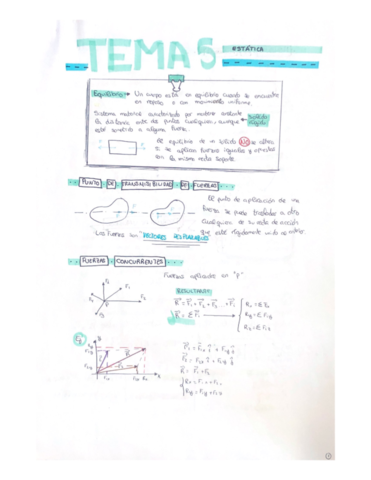 TEMA 5
ESTÁTICA
Equilibrio → Un cuerpo está en equilibrio cuando se encuentra
en reposo o con movimiento uniforme.
Sistema material caracterizado por mantener constante
la distancia entre dos puntos cualesquiera, aunque
esté sometido a alguna fuerza.
Sólido rígido
El equilibrio de un sólido NO se altera
si se aplican fuerzas iguales y opuestas
en la misma recta soporte.
PUNTO DE DE FUERZAS
El punto de aplicación de una
fuerza se puede trasladar a otro
cualquiera de su recta de acción
que esté rígidamente unido al anterior.
Las fuerzas son VECTORES
FUERZAS CONCURRENTES
Fuerzas aplicadas en "P"
RESULTANTE
R = F₁ + F₂ + F₃ + F₁
R = Σ Fi
Rx = Σ Fix
Ry = Σ Fiy
Rz = Σ Fiz
Ej
F₁ = F₁x i + F₁y j
F₂ = F₂x i + F₂y j
R = F₁ + F₂
Ry = F₁y + F₂y